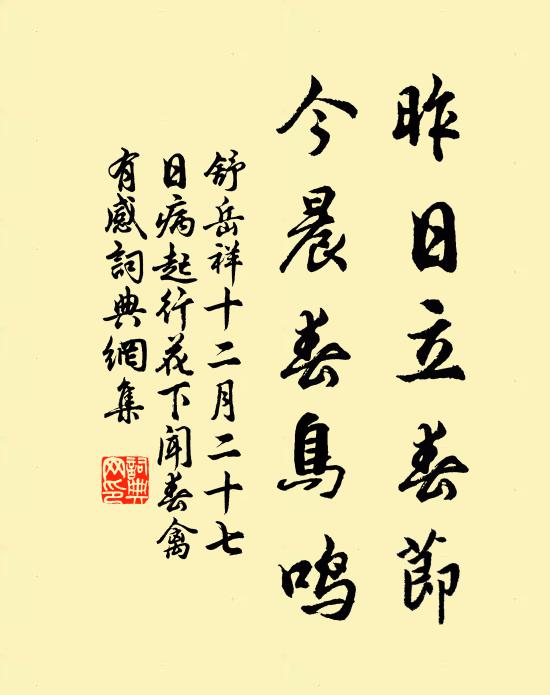 昨日立春節
今晨春鳥鳴
舒岳祥十二月二十七
日病起行花下聞春禽
有感詞典網集
詞典